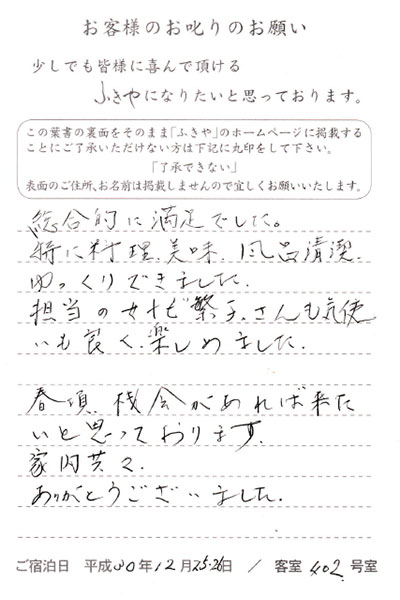 お客様のお叱りのお願い
少しでも皆様に喜んで頂ける
ふきやになりたいと思っております。
この葉書の裏面をそのまま「ふきや」のホームページに掲載する
ことにご了承いただけない方は下記に丸印をして下さい。
「了承できない」
表面のご住所、お名前は掲載しませんので宜しくお願いいたします。
総合的に満足でした。
特に料理、美味、風呂清潔、
ゆっくりできました。
担当の 繁子さんも気使
いも良く、楽しめました。
春頃、機会があれば来た
いと思っております。
家内共々、
ありがとうございました。
ご宿泊日 平成30年12月25.26日 / 客室 402 号室